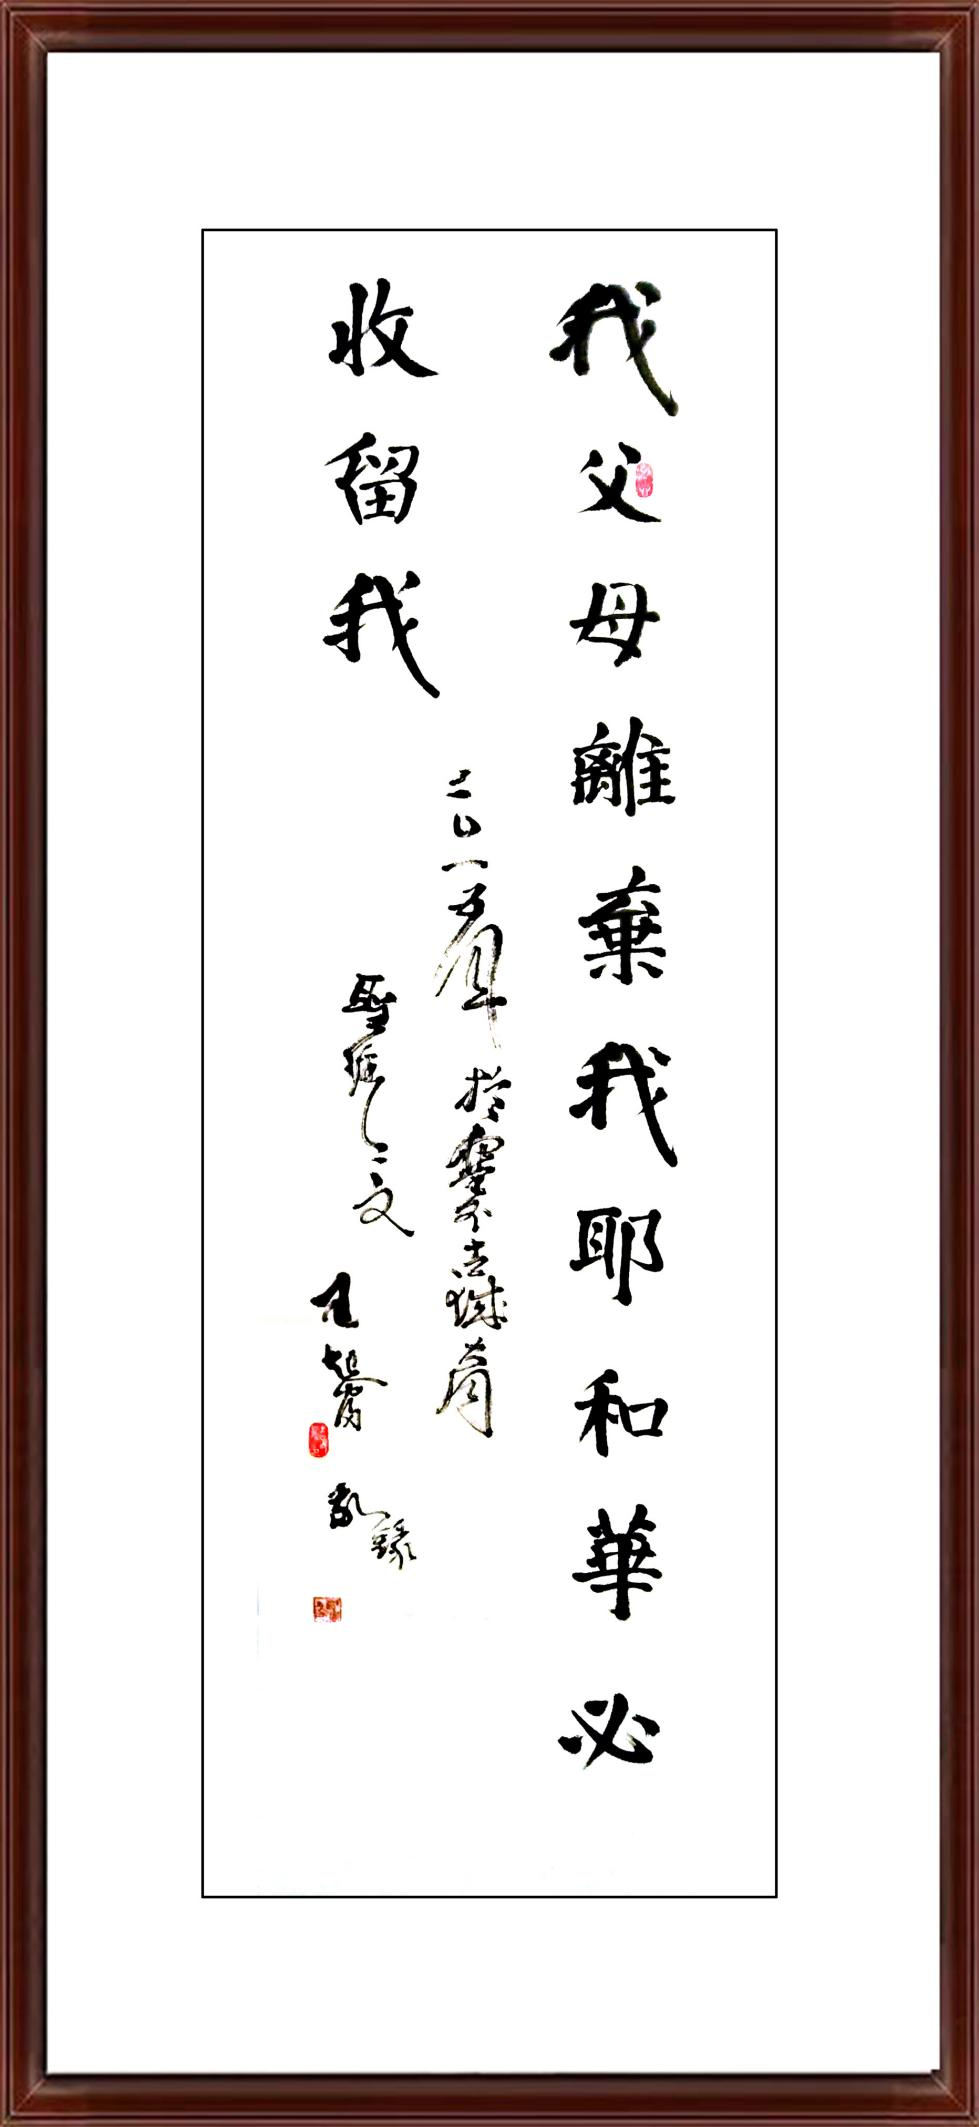 我父母離棄我耶和華必
收留我
二〇一五年於
聖經之文
敬錄